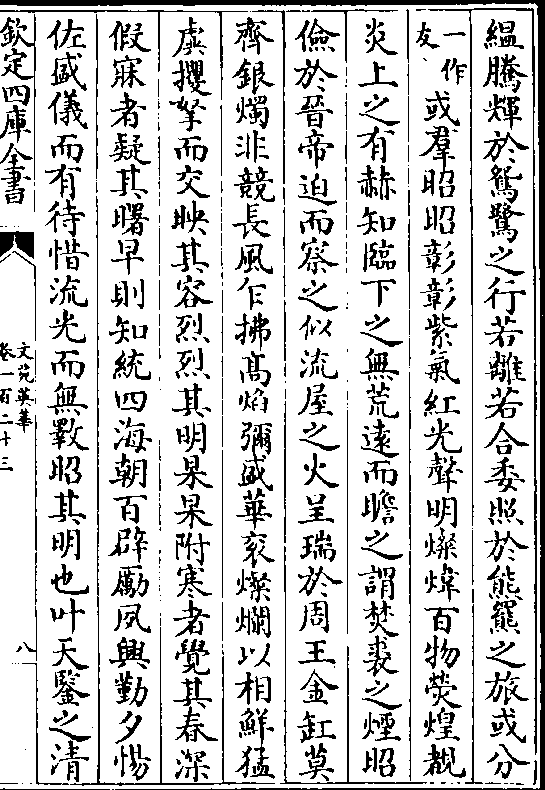 緼騰輝於鴛鷺之行若離若合委照於熊羆之旅或分
一作友或羣昭昭彰彰紫氣紅光聲明燦煒百物熒煌覩
炎上之有赫知臨下之無荒遠而瞻之謂焚裘之煙昭
儉於晉帝迫而察之似流屋之火呈瑞於周王金缸莫
齊銀燭非競長風乍拂髙焰彌盛華衮燦爛以相鮮猛
虡攫拏而交映其容烈烈其明杲杲附寒者覺其春深
假寐者疑其曙早則知統四海朝百辟勵夙興勤夕惕
佐盛儀而有待惜流光而無斁昭其明也叶天鑒之清
欽定四庫全書
文苑英華
卷一百二十三
八